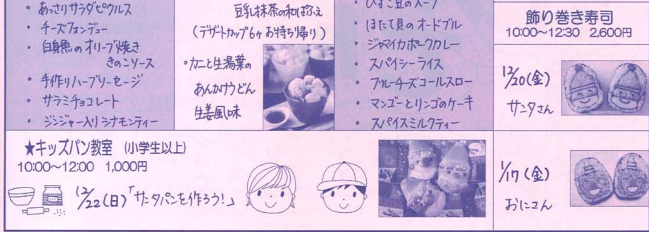 ・あっさりサラダピクルス
・チーズフォンデュー
・白身魚のオリーブ焼き
きのこソース
・手作りハーブソーセージ
・サラミチョコレート
・ジンジャー入りシナモンティー
豆乳抹茶の和ぱふぇ
(デザートカップ6ヶお持ち帰り)
・カニと生湯葉の
あんかけうどん
生姜風味
・ひよこ豆のスープ
・ほたて貝のオードブル
・ジャマイカポークカレー
・スパイシーライス
・ブルーチーズコールスロー
・マンゴーとリンゴのケーキ
・スパイスミルクティー
飾り巻き寿司
10:00～12:30 2,600円
12/20(金)
サンタさん
1/17(金)
おにさん
★キッズパン教室 (小学生以上)
10:00～12:00 1,000円
12/22(日)「サンタパンを作ろう!」